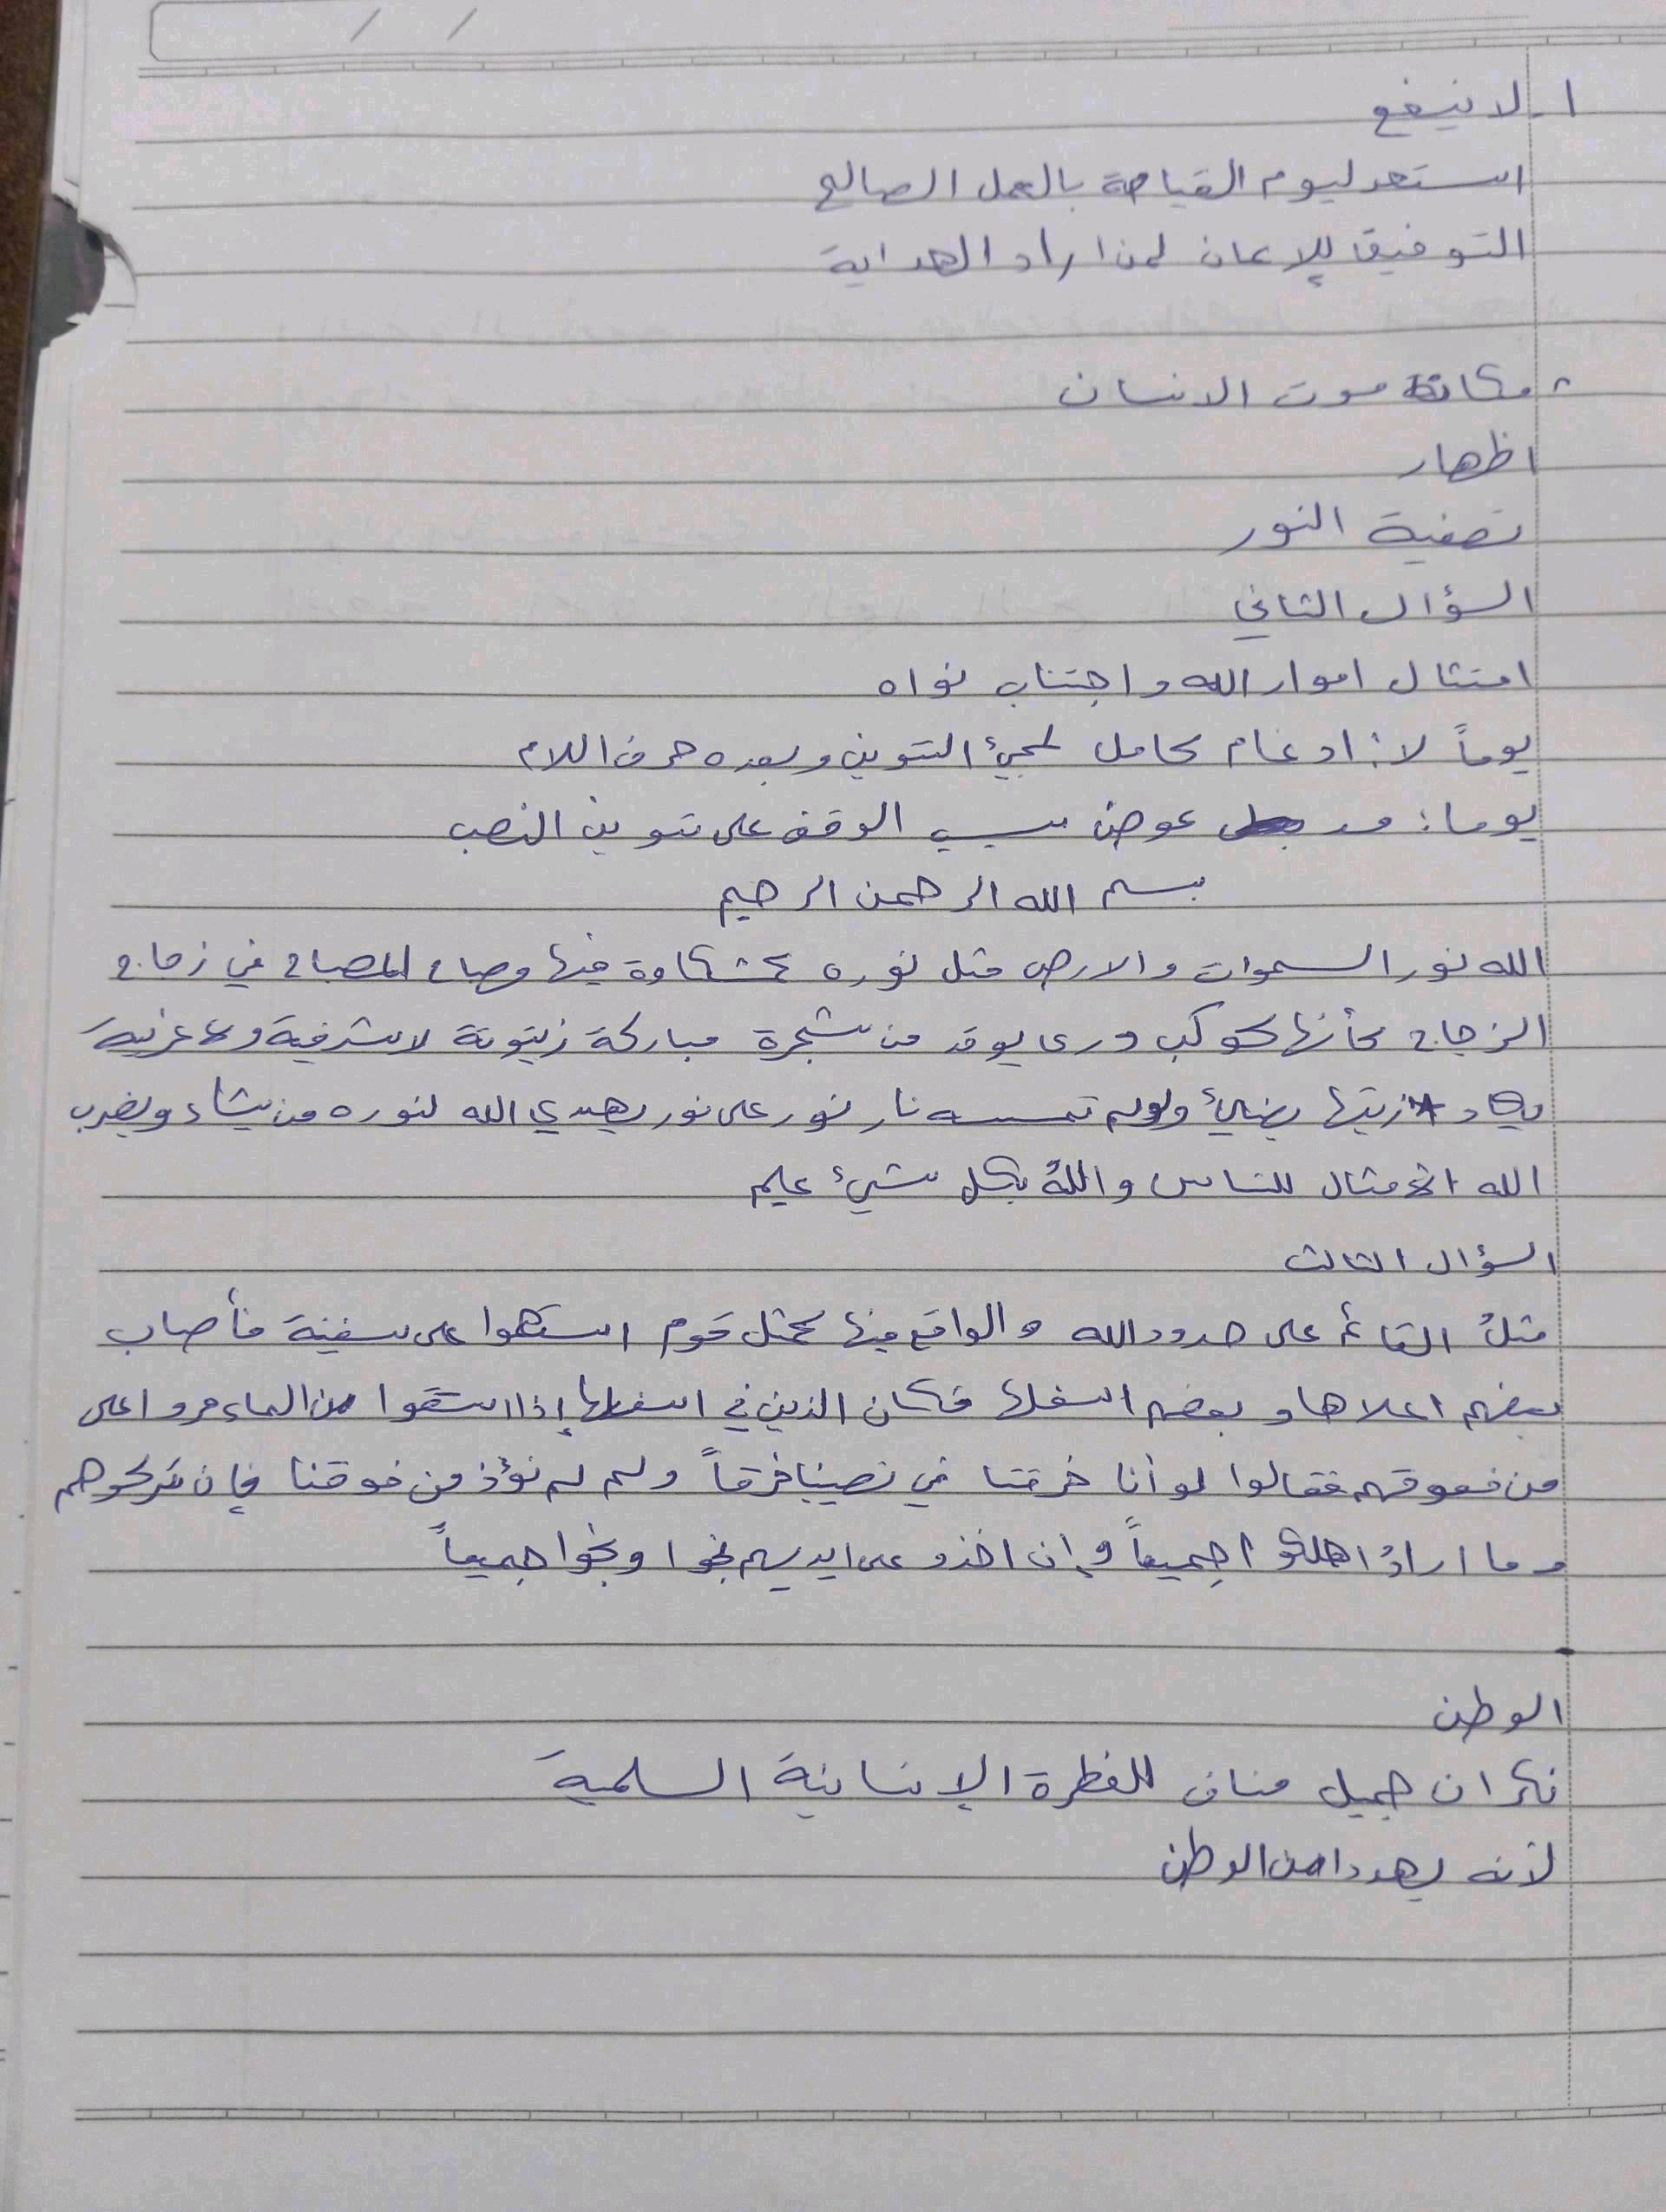 ١. لا ينفع
استعد ليوم القيامة بالعمل الصالح
التوفيق للإيمان لمن اراد الهداية
مكانة موت الانسان
اظهار
تصفية النور
السؤال الثاني
امتثال اموار الله واجتناب نواه
يوماً لا: ادغام كامل لمجئ التنوين وبعده حرف اللام
يوما: مد عوض سبب الوقف على تنوين النصب
بسم الله الرحمن الرحيم
الله نور السموات والارض مثل نوره كمشكاوة فيها مصباح المصباح في زجاج
الزجاج كأنها كوكب درى يوقد من شجرة مباركة زيتونة لا شرقية ولا غربية
يكاد زيتها يضيئ ولولم تمسسه نار نور على نور يهدي الله لنوره من يشاء ويضرب
الله الامثال للناس واللهُ بكل شيئ عليم
السؤال الثالث
مثلُ القائم على حدود الله والواقع فيها كمثل قوم استهموا على سفينة فأصاب
بعضهم اعلاها و بعضهم اسفلها فكان الذين في اسفلها إذا استقوا من الماء مروا على
من فوقهم فقالوا لو أنا خرقنا في نصيبنا خرقاً ولم لم نؤذ من فوقنا فإن تتركوهم
وما ارادُ اهلكو اجميعاً وإن اخذو على ايديهم نجوا ونجوا جميعاً
الوطن
نكران جميل مناف للفطرة الإنسانية السلمية
لأنه يهدد امن الوطن